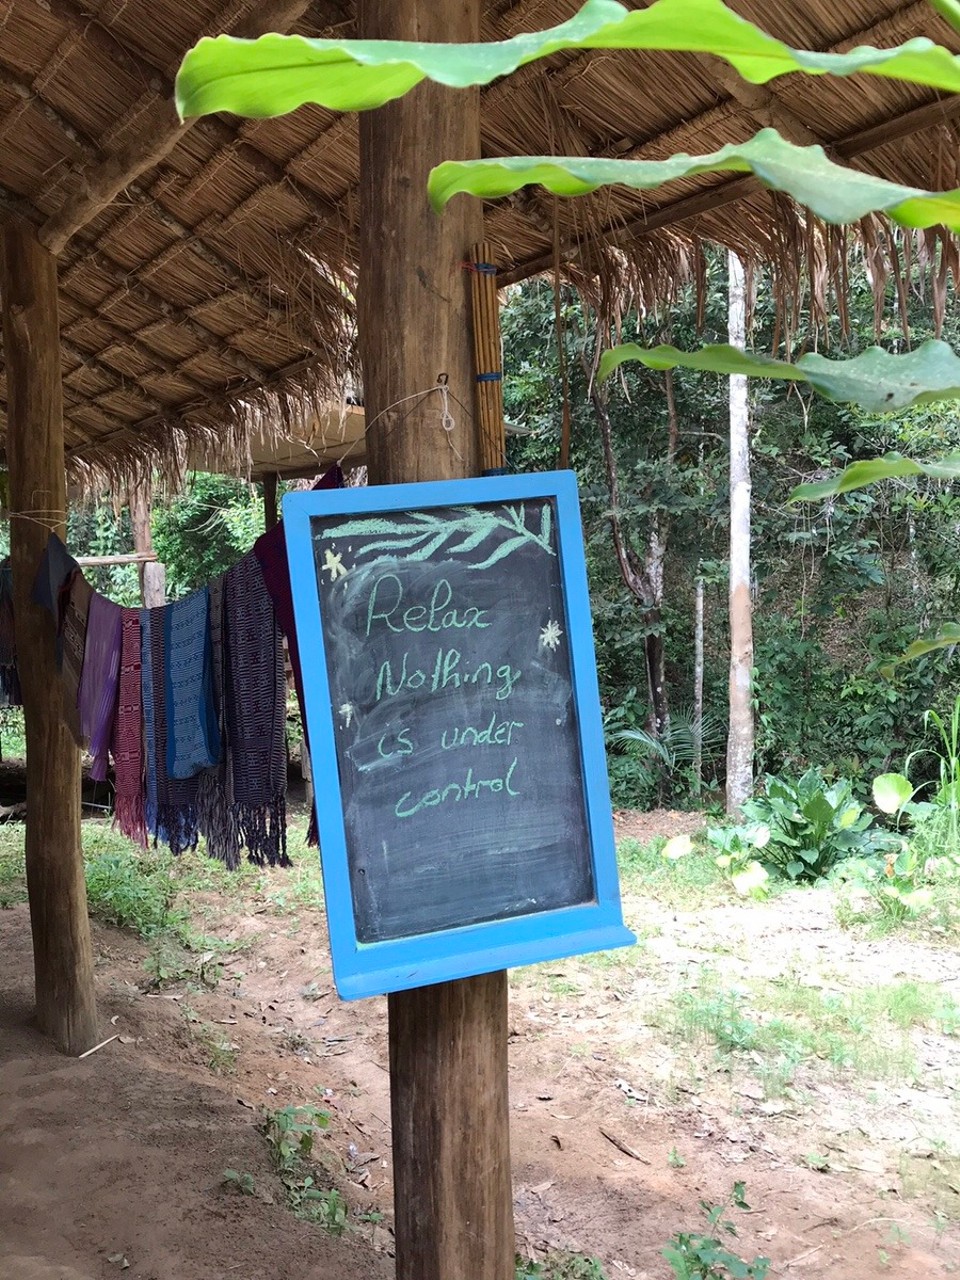 Relax
Nothing
is under
control